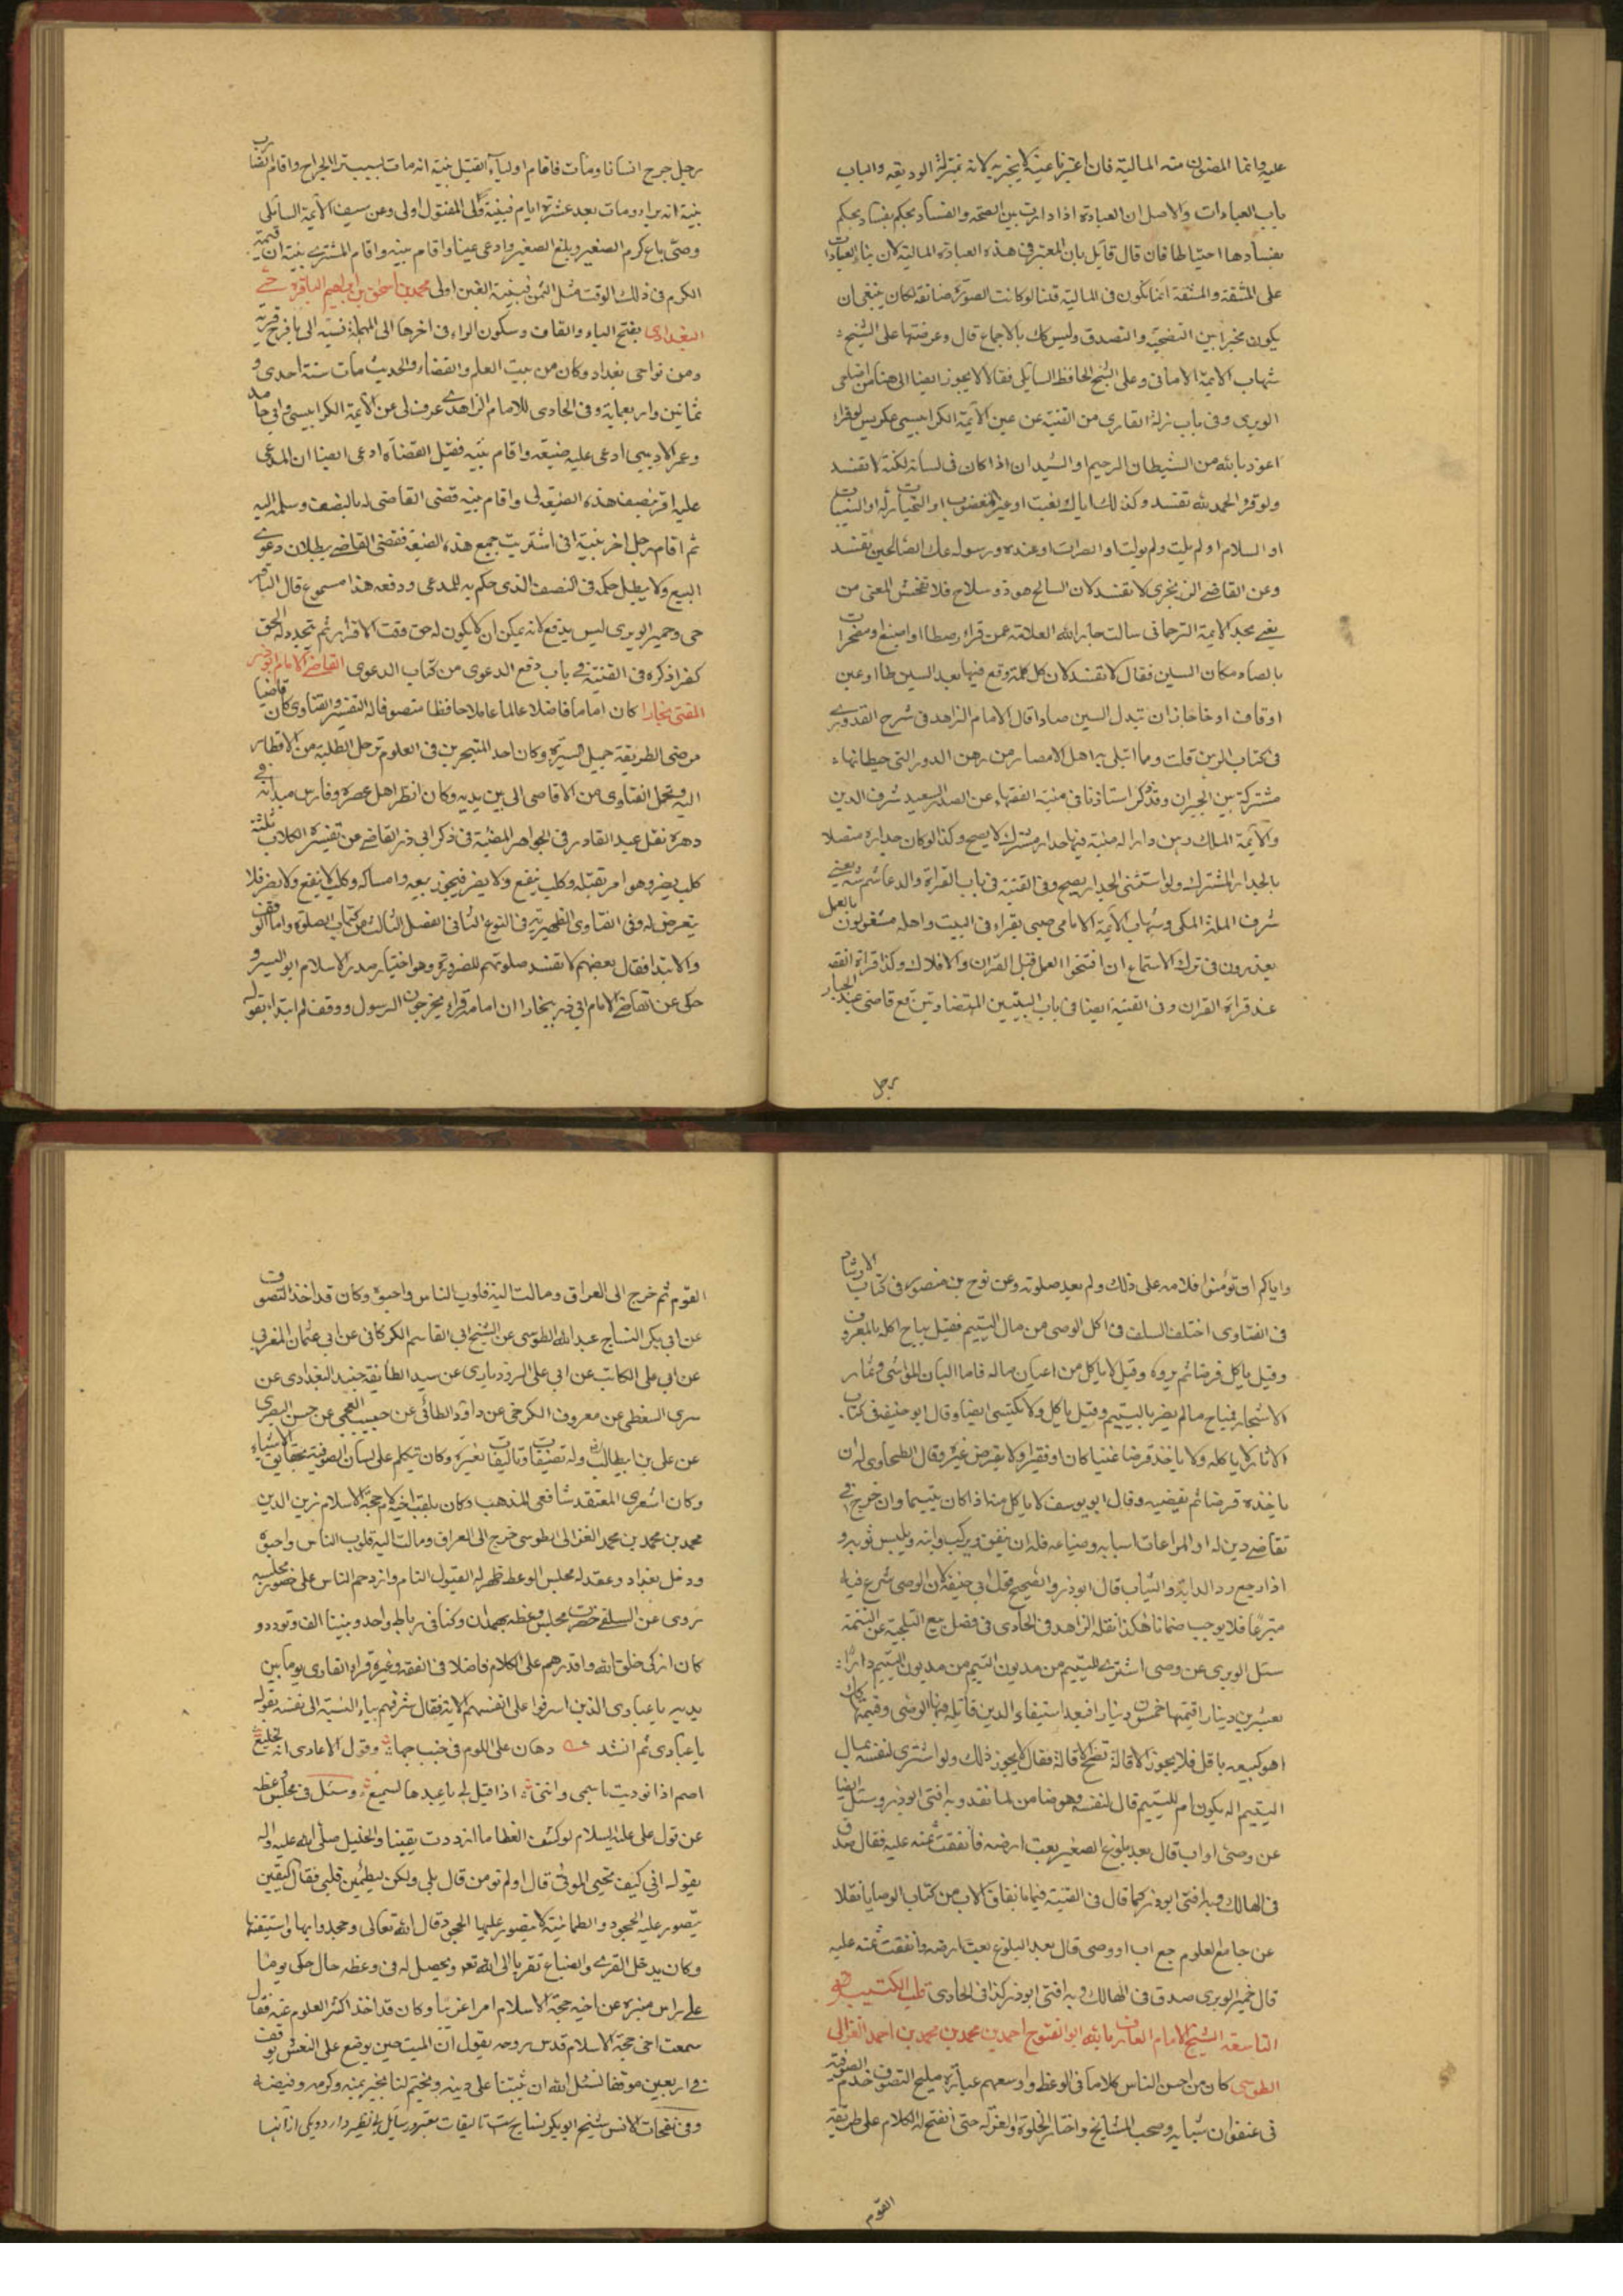 عليه وانما المضمون منه المالية فان اعتبرنا عينه لا يجزيه لانه بمنزلة الوديعة والباب
باب العبادات والاصل ان العبادة اذا دارت بين الصحة والفساد يحكم بفساد يحكم
بفسادها احتياطا فان قال قايل بان المعتبر في هذه العبادة المالية لان بناء العبادات
على المشقة والمشقة انما تكون في المالية قلنا لو كانت الصورة ضائعة لكان ينبغى ان
يكون مخيرا بين التضحية والتصدق وليس كك بالاجماع قال وعرضتها على الشيخ
شهاب الايمة الامامى وعلى الشيخ الحافظ السايلى فقالا لا يجوز ايضا الى هنا من اضاحى
الوبرى وفى باب زلة القارى من القنية عن عين الايمة الكرابيسى عكريس لو قراء
اعوذ بالله من الشيطان الرحيم او الشيدان اذا كان فى لسانه لكنة لا تفسد
ولو قرء الحمد لله تفسد وكذلك اياك نعبت او غير المغضوب او التحيات ترله او الثيبات
او السلام او لم يلت ولم يولت او الصرات او عنده ورسوله عك الصالحين تفسد
وعن القاضى الزمخرى لا تفسد لان السالح هو ذو سلاح فلا تفحش المعنى من
يغى مجد الايمة الترجمانى سالت جار الله العلامة عمن قراء رصطا او اصبغ او مصخرات
بالصاد مكان السين فقال لا تفسد لان كل كلمة وقع فيها بعد السين طا او عين
او قاف او خا جاز ان تبدل السين صادا قال الامام الزاهد فى شرح القدورى
فى كتاب الرهن قلت وما ابتلى به اهل الامصار من رهن الدور التى حيطانها
مشتركة بين الجيران وقد ذكر استاذنا فى منية الفقهاء عن الصدر السعيد شرف الدين
والايمة الملك رهن دارا له مبنية فيها جدار مشترك لا يصح وكذا لو كان جداره متصلا
بالجدار المشترك ولو استثنى الجدار يصح وفى القنية فى باب القراة والدعا شم شه يعنى
شرف الملة المكى وشهاب الايمة الامامى صبى يقراء فى البيت واهله مشغولون بالعمل
يعذرون فى ترك الاستماع ان افتتحوا العمل قبل القران والا فلا ك وكذا قراة الفقه
عند قراة القران وفى القنية ايضا فى باب البينتين المتضادتين قع قاضى عبد الجبار
رجل
رجل جرح انسانا ومات فاقام اولياء القتيل بينة انه مات بسبب الجراح واقام الضارب
بينة انه برا ومات بعد عشرة ايام فبينة ولى المقتول اولى وعن سيف الايمة السايلى
وصى باع كرم الصغير وبلغ الصغير وادعى غبنا واقام بينه واقام المشترى بينة ان قيمة
الكرم فى ذلك الوقت مثل الثمن فبينة الغبن اولى محمد بن اسحق بن ابراهيم الباقرحى
البغدادى بفتح الباء والقاف وسكون الراء فى اخرها الى المهملة نسبة الى باقرح قرية
ومن نواحى بغداد وكان من بيت العلم والقضاء والحديث مات سنة احدى و
ثمانين واربعماية وفى الحاوى للامام الزاهدى عرف لى عن الايمة الكرابيسى وابى حامد
وعمر الاديبى ادعى عليه ضيعة واقام بينه فقبل القضاة ادعى ايضا ان المدعى
عليه اقر بنصف هذه الضيعة لى واقام بينه قضى القاضى له بالنصف وسلمه اليه
ثم اقام رجل اخر بينة انى اشتريت جميع هذه الضيعة فقضى القاضى ببطلان دعوى
البيع ولا يبطل حكمه فى النصف الذى حكم به للمدعى ودفعه هذا مسموع قال الباقر
حى وحمير الوبرى ليس بدفع لانه يمكن ان لا يكون له حق وقت الاقرار ثم يتجدد له الحق
كفر اذكره فى القنية فى باب دفع الدعوى من كتاب الدعوى القاضى الامام ابو ذر
المفتى بخارا كان اماما فاضلا عالما عاملا حافظا متصوفا له التفسير والفتاوى كان قاضيا
مرضى الطريقة جميل السيرة وكان احد المتبحرين فى العلوم ترحل الطلبة من الاقطار
اليه وتحمل الفتاوى من الاقاصى الى بين يديه وكان انظر اهل عصره وفارس ميدانه فى
دهره نقل عبد القادر فى الجواهر المضية فى ذكر ابى ذر القاضى عن تفسيره الكلاب ثلثة
كلب يضر وهو امر بقتله وكلب ينفع ولا يضر فيجوز بيعه وامساكه وكلب لا ينفع ولا يضر فلا
يتعرض له وفى الفتاوى الظهيرية فى النوع الثانى الفصل الثالث من كتاب الصلوة واما الوقف
والابتدا فقال بعضهم لا تفسد صلوتهم للضرورة وهو اختيار صدر الاسلام ابو اليسر و
حكى عن القاضى الامام ابى ذر ببخارا ان امامه قراء يخرجون الرسول ووقف ثم ابتدا بقوله
واياكم ان تؤمنوا فلامه على ذلك ولم يعد صلوته وعن نوح بن منصور فى كتاب الارشاد
فى الفتاوى اختلف السلف فى اكل الوصى من مال اليتيم فقيل يباح اكله بالمعروف
وقيل ياكل قرضا ثم يرده وقيل لا ياكل من اعيان ماله فاما البان المواشى وثمار
الاشجار فباح ما لم يضر باليتيم وقيل ياكل ولا يكتسى ايضا وقال ابو حنيفه فى كتاب
الاثار لا ياكله ولا ياخذ قرضا غنيا كان او فقيرا ولا يقرض غيره وقال الطحاوى له ان
ياخذه قرضا ثم يقضيه وقال ابو يوسف لا ياكل منه اذا كان مقيما وان خرج فى
تقاضى دين له او المراعات اسبابه وضياعه فله ان ينفق ويركب دابته ويلبس ثوبه و
اذا رجع رد الدابة والثياب قال ابو ذر والصحيح قول ابى حنيفة لان الوصى شرع فيه
متبرعا فلا يوجب ضمانا هكذا نقله الزاهد فى الحاوى فى فصل بيع التلجية عن التتمة
سئل الوبرى عن وصى اشترى لليتيم من مديون اليتيم من مديون اليتيم دارا
بعشرين دينارا قيمتها خمسون دينارا فبعد استيفاء الدين قايله فيها الوصى وقيمتها كان
اهو كبيعه باقل فلا يجوز الاقالة تصح الاقالة فقال لا يجوز ذلك ولو اشترى لنفسه بمال
اليتيم اله يكون ام لليتيم قال لنفسه وهو ضامن لما نقد وبه افتى ابو ذر وسئل ايضا
عن وصى او اب قال بعد بلوغ الصغير بعت ارضه فانفقت ثمنه عليه فقال صدق
فى الهالك وبه افتى ابو ذر كما قال فى القنية فيما بانفاق الاب من كتاب الوصايا نقلا
عن جامع العلوم جع اب او وصى قال بعد البلوغ بعت ارضه وانفقت ثمنه عليه
قال خمير الوبرى صدق فى الهالك وبه افتى ابو ذر كذا فى الحاوى قلب الكتيبة
التاسعة الشيخ الامام العارف بالله ابو الفتوح احمد بن محمد بن محمد بن احمد الغزالى
الطوسى كان من احسن الناس كلاما فى الوعظ واوسعهم عبارة مليح التصوف خدم الصوفية
فى عنفوان شبابه وصحب المشايخ واختار الخلوة والعزلة حتى انفتح له الكلام على طريقة
القوم
القوم ثم خرج الى العراق ومالت اليه قلوب الناس واحبوه وكان قد اخذ التصوف
عن ابى بكر النساج عبد الله الطوسى عن الشيخ ابى القاسم الكركانى عن ابى عثمان المغربى
عن ابى على الكاتب عن ابى على الرودبارى عن سيد الطايفة جنيد البغدادى عن
سرى السقطى عن معروف الكرخى عن داود الطائى عن حبيب العجمى عن حسن البصرى
عن على بن ابيطالب وله تصنيفات وتاليفات كثيرة وكان يتكلم على لسان الصوفية بحقايق الاشياء
وكان اشعرى المعتقد شافعى المذهب وكان يلقب اخيه الامام حجة الاسلام زين الدين
محمد بن محمد بن محمد الغزالى الطوسى خرج الى العراق ومالت اليه قلوب الناس واحبوه
ودخل بغداد وعقد له مجلس الوعظ ظهر له القبول التام وازدحم الناس على حضور مجلسه
روى عن السلفى حضرت مجلس وعظه بهمدان وكنا فى رباط واحد وبيننا الف وتودد و
كان اذكى خلق الله واقدرهم على الكلام فاضلا فى الفقه وغيره قراء القارى يوما بين
يديه يا عبادى الذين اسرفوا على انفسهم الاية فقال شرفهم بياء النسبة الى نفسه بقوله
يا عبادى ثم انشد وهان على اللوم فى جنب حبها وقول الاعادى انه لخليع
اصم اذا نوديت باسمى واننى اذا قيل لى يا عبدها لسميع وسئل فى مجلس وعظه
عن قول على عليه السلام لو كشف الغطا ما ازددت يقينا والخليل صلى الله عليه واله
يقول رب ارنى كيف تحيى الموتى قال اولم تومن قال بلى ولكن ليطمئن قلبى فقال اليقين
يتصور عليه الجحود والطمانينة لا يتصور عليها الجحود قال الله تعالى وجحدوا بها واستيقنتها
وكان يدخل القرى والضياع تقربا الى الله تعه ويحصل له فى وعظه حال حكى يوما
على راس منبره عن اخيه حجة الاسلام امرا غريبا وكان قد اخذ اكثر العلوم عنه فقال
سمعت اخى حجة الاسلام قدس روحه يقول ان الميت حين يوضع على النعش يوقف
فى اربعين موقفا نسئل الله ان يثبتنا على دينه ويختم لنا بخير بمنه وكرمه وفيضه
وفى نفحات الانس شيخ ابو بكر نساج ست تاليفات معتبر ورسايل بى نظير دارد ويكى از انها